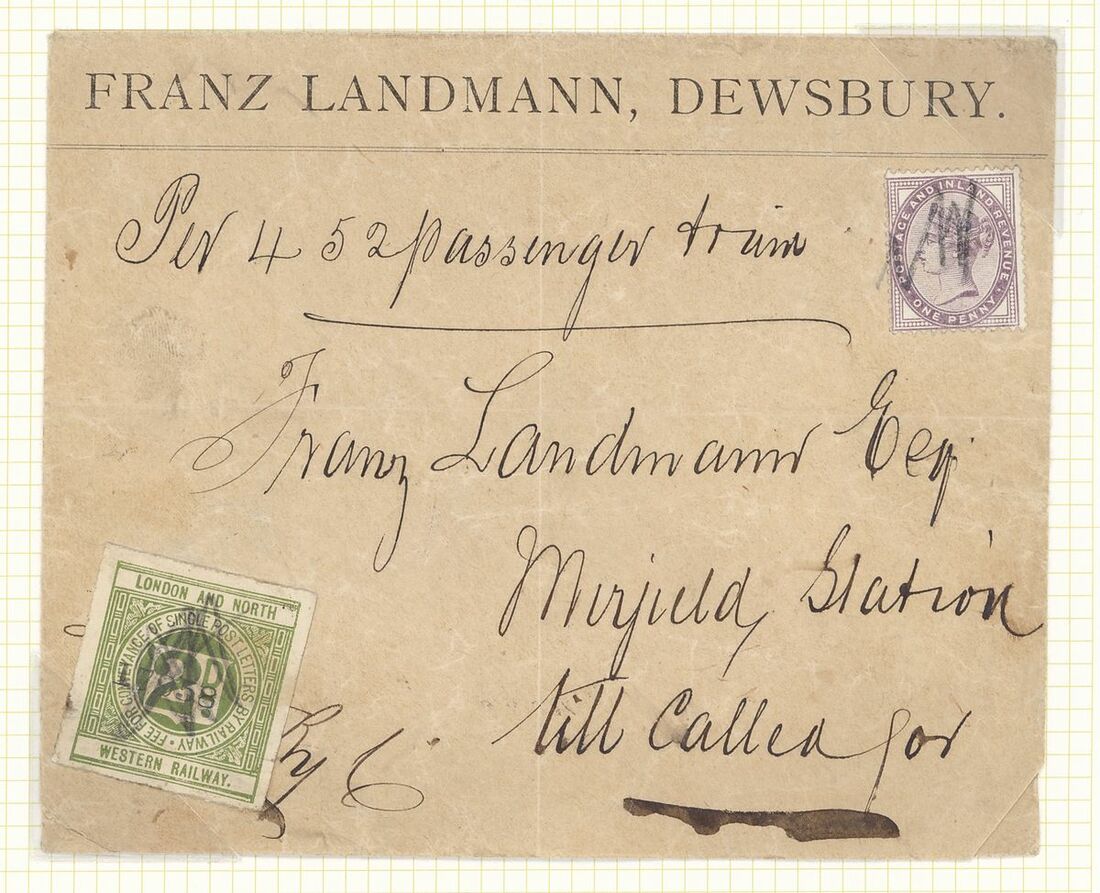 FRANZ LANDMANN, DEWSBURY.
Per 4 52 passenger train
POSTAGE AND INLAND REVENUE
ONE PENNY
Franz Landmann Esq
Mirfield Station
till called for
LONDON AND NORTH
FEE FOR CONVEYANCE OF SINGLE POST LETTERS BY RAILWAY
2D
WESTERN RAILWAY.